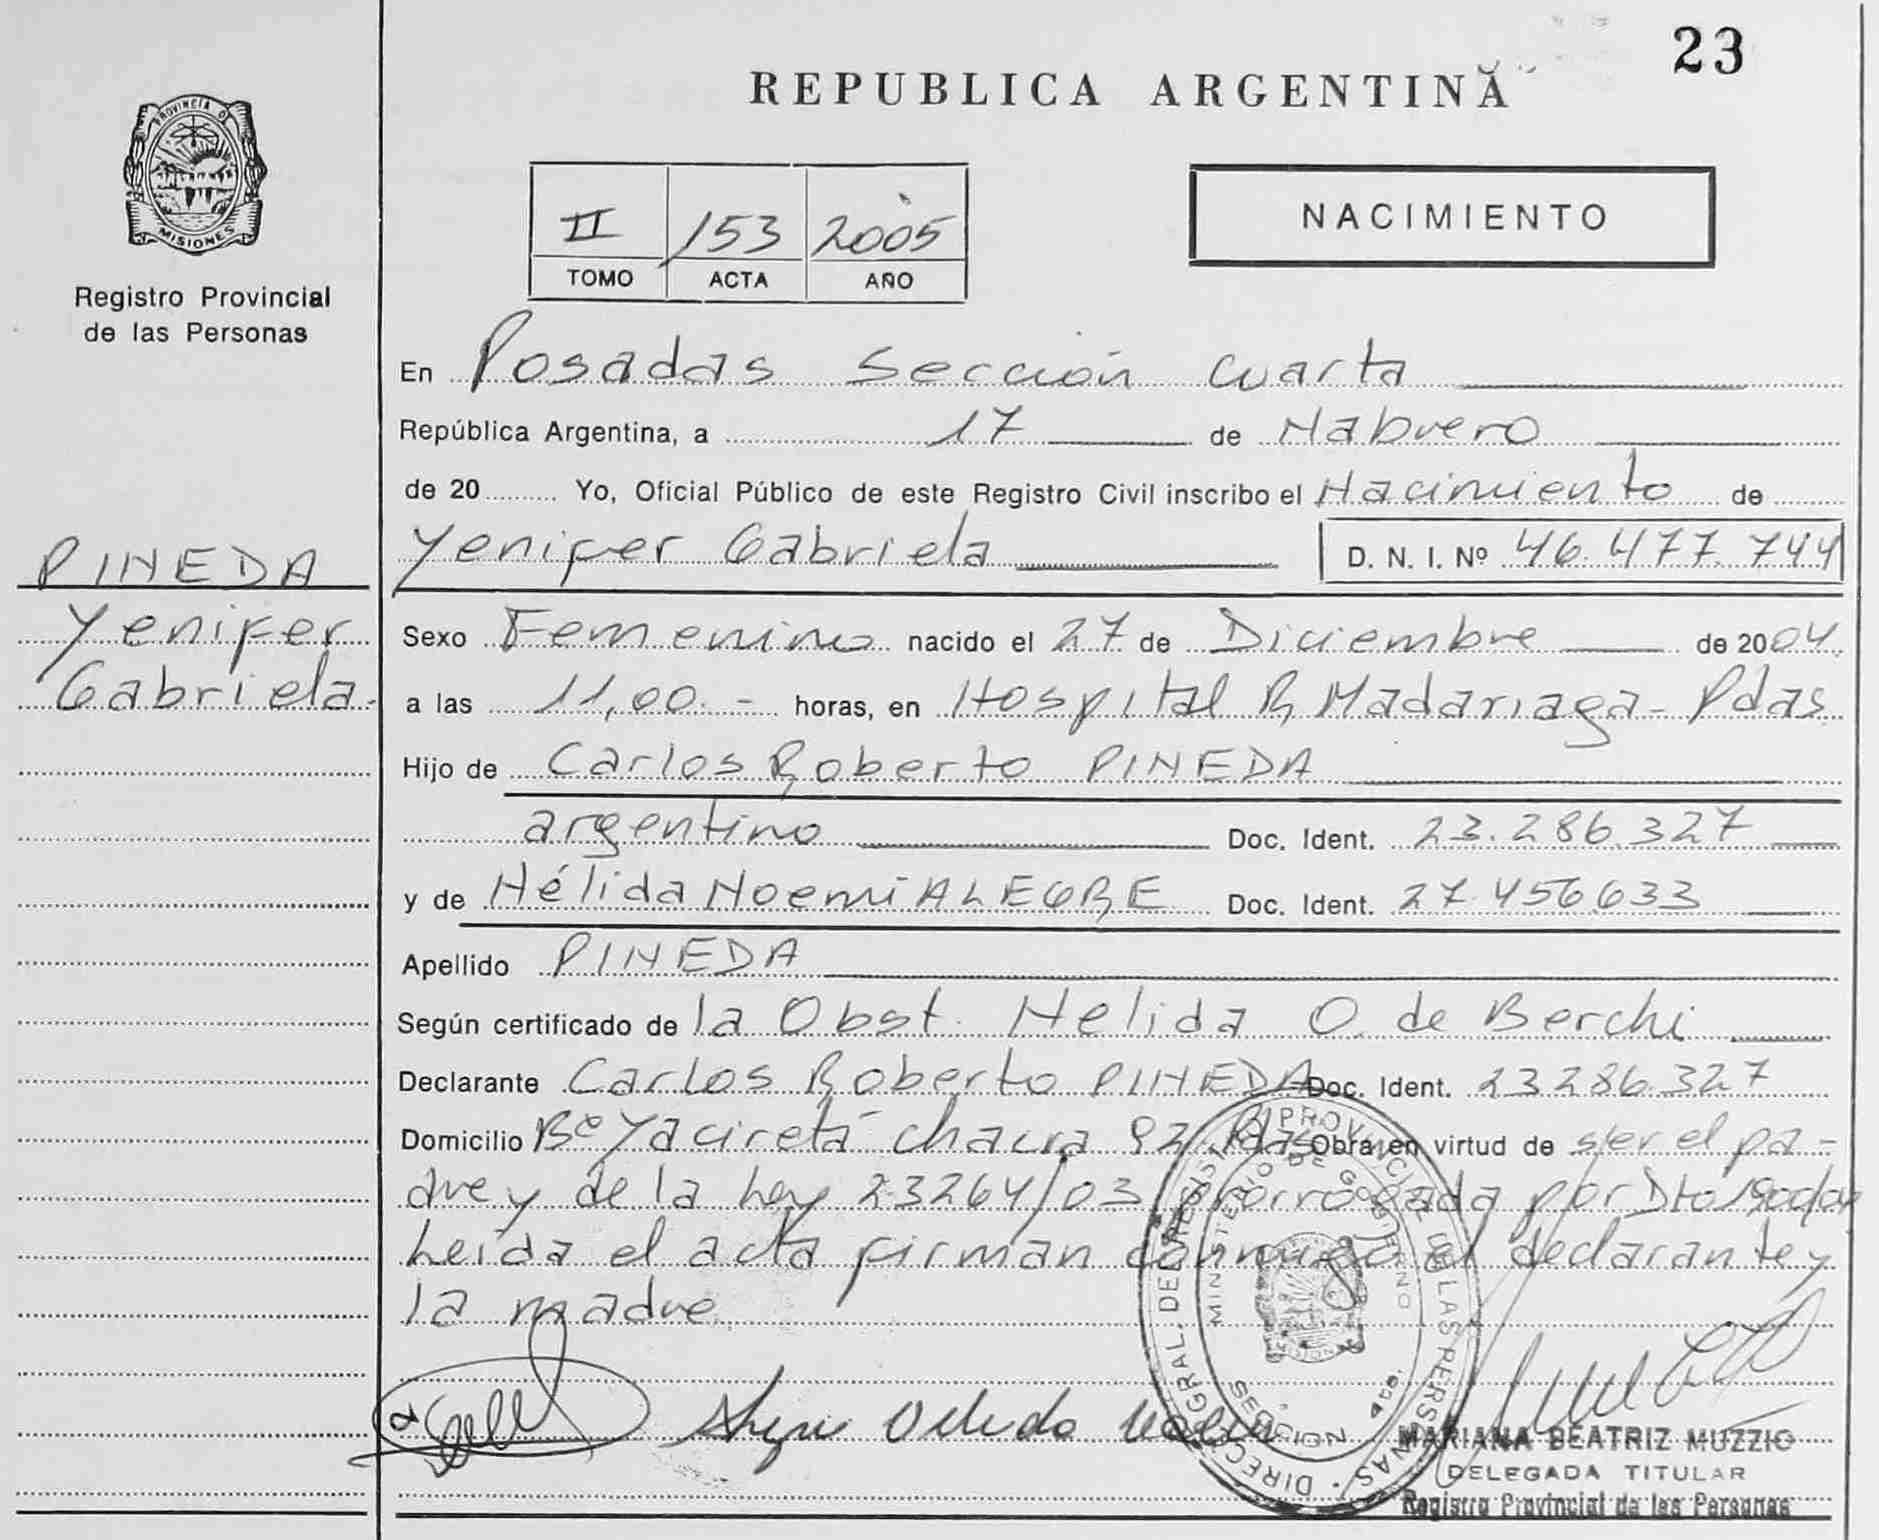 23
REPUBLICA ARGENTINA
PROVINCIA D
MISIONES
Registro Provincial
de las Personas
II 153 2005
TOMO ACTA AÑO
NACIMIENTO
En Posadas Sección Cuarta
República Argentina, a 17 de
de 20 Yo, Oficial Público de este Registro Civil inscribo el Nacimiento de
Yenifer Gabriela D. N. I. Nº 46.477.744
PINEDA
Yenifer
Gabriela.
Sexo Femenino nacido el 27 de Diciembre de 2004
a las 11,00.- horas, en Hospital R, Madariaga - Pdas
Hijo de Carlos Roberto PINEDA
argentino Doc. Ident. 23.286.327
y de Hélida Noemi ALEGRE Doc. Ident. 27.456.633
Apellido PINEDA
Según certificado de la Obst. Nelida O. de Berchi
Declarante Carlos Roberto PINEDA Doc. Ident. 23286.327
Domicilio Bº Yaciretá chacra 92. Pdas Obra en virtud de ser el pa-
dre y de la Ley 23264/03 prorrogada por Dto
Leida el acta firman conmigo el declarante y
la madre
MINISTERIO DE GOBIERNO
MISIONES
MARIANA BEATRIZ MUZZIO
DELEGADA TITULAR
Registro Provincial de las Personas